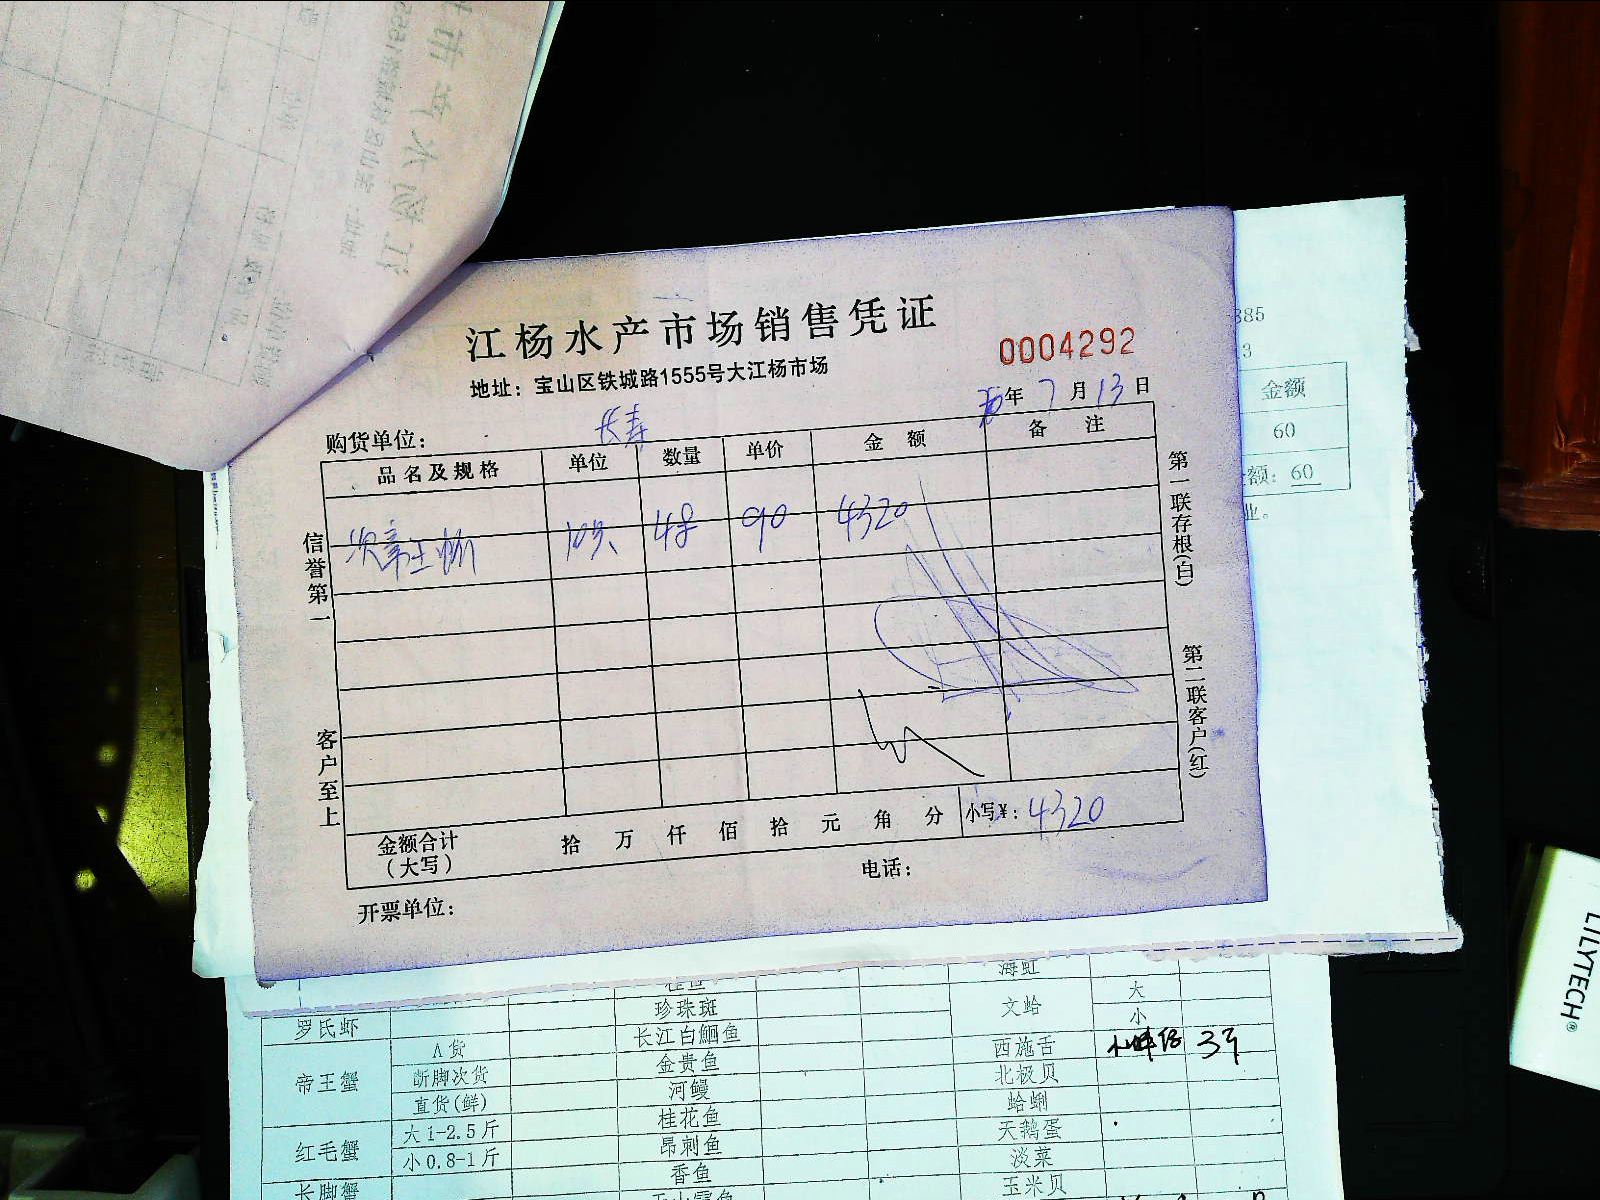 江杨水产市场销售凭证
地址：宝山区铁城路1555号大江杨市场
0004292
年 7 月 13 日
购货单位： 长寿
品名及规格 单位 数量 单价 金额 备注
次帝王蟹 10只 48 90 4320
信誉第一
客户至上
第一联存根(白)
第二联客户(红)
金额合计 拾 万 仟 佰 拾 元 角 分 小写¥： 4320
（大写）
开票单位：
电话：
885
3
金额
60
额：60
业。
江杨水产市
海虹
罗氏虾 珍珠斑 文蛤 大
长江白鮰鱼 小
帝王蟹 A货 金贵鱼 西施舌 3斤
断脚次货 河鳗 北极贝
直货(鲜) 桂花鱼 蛤蜊
红毛蟹 大1-2.5斤 昂刺鱼 天鹅蛋
小0.8-1斤 香鱼 淡菜
长脚蟹 玉米贝
LILYTECH®